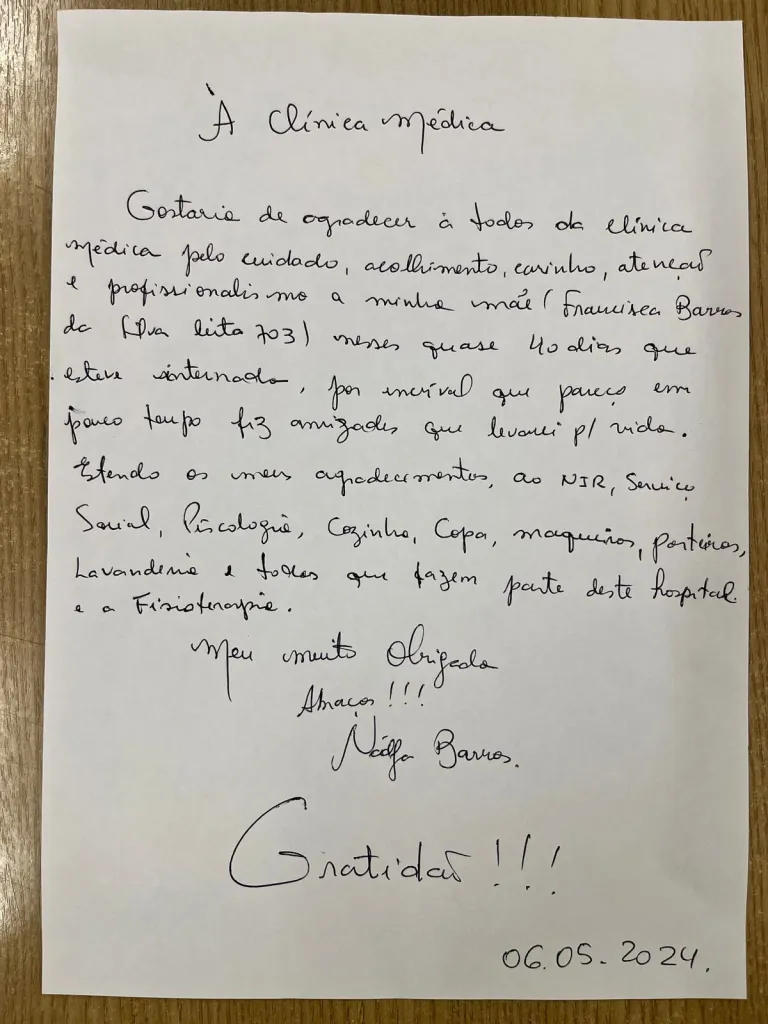 À Clínica Médica
Gostaria de agradecer à todos da clínica
médica pelo cuidado, acolhimento, carinho, atenção
e profissionalismo a minha mãe (Francisca Barros
da Silva leito 703) nesses quase 40 dias que
esteve internada, por incrível que pareça em
pouco tempo fiz amizades que levarei p/ vida.
Estendo os meus agradecimentos, ao NIR, Serviço
Social, Piscologia, Cozinha, Copa, maqueiros, porteiros,
Lavanderia e todos que fazem parte deste hospital
e a Fisioterapia.
Meu muito Obrigada
Abraços!!!
Barros.
Gratidão!!!
06.05.2024.